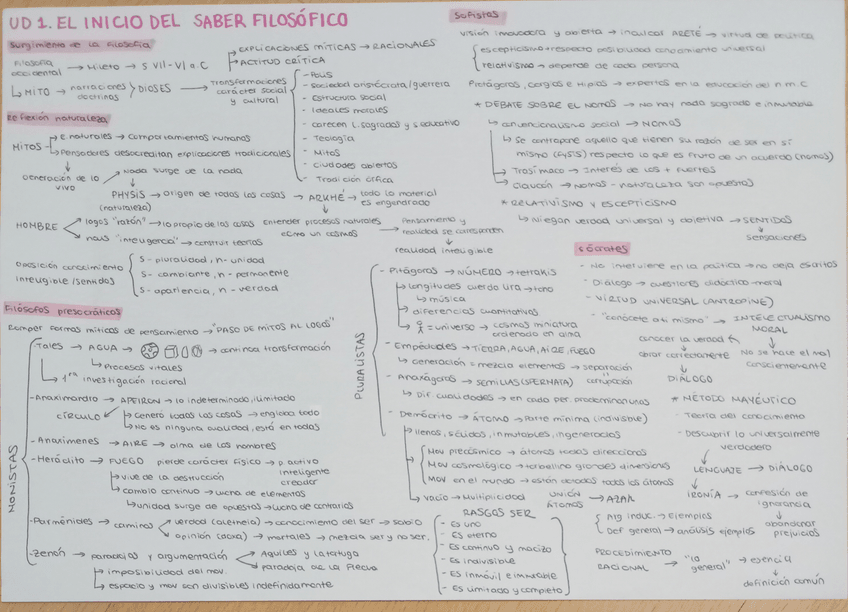 UD 1. EL INICIO DEL SABER FILOSÓFICO
Surgimiento de la Filosofía
Filosofía occidental → Mileto → S VII-VI a.C
→ EXPLICACIONES MÍTICAS → RACIONALES
→ ACTITUD CRÍTICA
↳ MITO → narraciones doctrinas > DIOSES → Transformaciones carácter social y cultural
- Polis
- sociedad aristócrata/guerrera
- Estructura social
- Ideales morales
- carecen l. sagrados y s. educativo
- Teología
- Mitos
- Ciudades abiertas
- Tradición crítica
Reflexión naturaleza
MITOS
→ E. naturales → comportamientos humanos
→ Pensadores desacreditan explicaciones tradicionales
Generación de lo vivo
→ Nada surge de la nada
PHYSIS → origen de todas las cosas → ARKHÉ → todo lo material es engendrado
(naturaleza)
HOMBRE
logos "razón" → lo propio de las cosas
nous "inteligencia" → construir teorías
entender procesos naturales como un cosmos
→ Pensamiento y realidad se corresponden
realidad inteligible
Oposición conocimiento inteligible/sentidos
S - pluralidad, n - unidad
S - cambiante, n - permanente
S - apariencia, n - verdad
Filósofos presocráticos
Romper formas míticas de pensamiento → "PASO DE MITOS AL LOGOS"
MONISTAS
Tales → AGUA → → continua transformación
↳ Procesos vitales
↳ 1era investigación racional
- Anaximandro → APEIRON → lo indeterminado, ilimitado
CÍRCULO
↳ Generó todas las cosas → engloba todo
↳ No es ninguna cualidad, está en todas
- Anaxímenes → AIRE → alma de los hombres
- Heráclito → FUEGO pierde carácter físico → p. activo inteligente creador
↳ vive de la destrucción
↳ cambio continuo → lucha de elementos
↳ unidad surge de opuestos → lucha de contrarios
- Parménides → caminos
verdad (aletheia) → conocimiento del ser → sabio
opinión (doxa) → mortales → mezcla ser y no ser.
- Zenón → paradojas y argumentación
Aquiles y la tortuga
paradoja de la flecha
↳ imposibilidad del mov.
↳ espacio y mov son divisibles indefinidamente
PLURALISTAS
- Pitágoras → NÚMERO → tetrakis
↳ longitudes cuerda lira → tono
↳ música
↳ diferencias cuantitativas
= universo → cosmos miniatura ordenado en alma
- Empédocles → TIERRA, AGUA, AIRE, FUEGO
↳ generación = mezcla elementos → separación corrupción
- Anaxágoras → SEMILLAS (SPERMATA)
↳ Dif cualidades → en cada per. predominan unas
- Demócrito → ÁTOMO → Parte mínima (indivisible)
↳ llenos, sólidos, inmutables, ingenerados
Mov precósmico → átomos todas direcciones
Mov cosmológico → torbellino grandes dimensiones
Mov en el mundo → están dotados todos los átomos
↳ vacío → Multiplicidad UNIÓN ÁTOMOS → AZAR
RASGOS SER
- Es uno
- Es eterno
- Es continuo y macizo
- Es indivisible
- Es inmóvil e inmutable
- Es limitado y completo
Sofistas
Visión innovadora y abierta → inculcar ARETÉ → virtud de política
escepticismo → respecto posibilidad conocimiento universal
relativismo → depende de cada persona
Protágoras, Gorgias e Hipias → expertos en la educación del n.m.c
* DEBATE SOBRE EL NOMOS → No hay nada sagrado e inmutable
↳ convencionalismo social → NOMOS
↳ Se contrapone aquello que tienen su razón de ser en sí mismo (FYSIS) respecto lo que es fruto de un acuerdo (nomos)
→ Trasímaco → Interés de los + fuertes
→ Glaucón → Nomos - naturaleza son opuestas
* RELATIVISMO Y ESCEPTICISMO
↳ Niegan verdad universal y objetiva → SENTIDOS
sensaciones
Sócrates
- No interviene en la política → no deja escritos
- Diálogo → cuestiones didáctico-moral
- VIRTUD UNIVERSAL (ANTROPINE)
- "conócete a ti mismo" → INTELECTUALISMO MORAL
conocer la verdad
obrar correctamente
No se hace el mal conscientemente
DIÁLOGO
* MÉTODO MAYÉUTICO
- Teoría del conocimiento
- Descubrir lo universalmente verdadero
LENGUAJE → DIÁLOGO
IRONÍA → confesión de ignorancia
abandonar prejuicios
Arg induc. → Ejemplos
Def general → análisis ejemplos
PROCEDIMIENTO RACIONAL → "lo general" → esencia
definición común